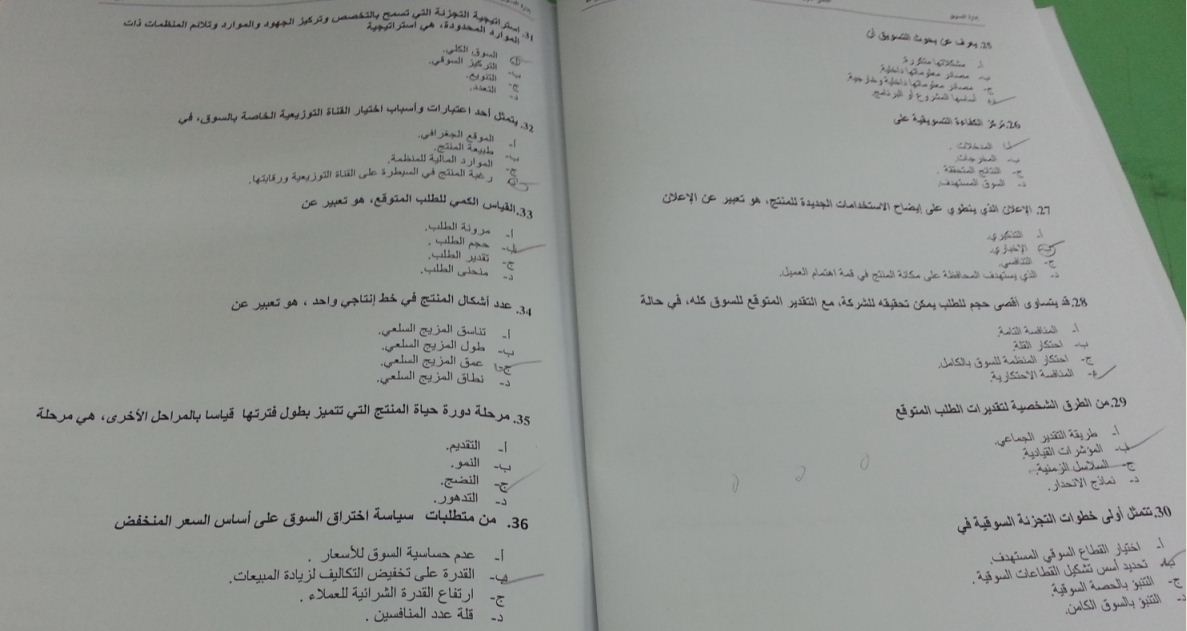 إدارة التسويق
25. يعرف عن بحوث التسويق أن
أ- مشكلاتها متكررة.
ب- مصادر معلوماتها داخلية.
ج- مصادر معلوماتها داخلية وخارجية.
د- أساسها المشروع أو البرنامج.
26. تركز الكفاءة التسويقية على
أ- المدخلات .
ب- المخرجات.
ج- النتائج المتحققة .
د- السوق المستهدف.
27. الإعلان الذي ينطوي على إيضاح الاستخدامات الجديدة للمنتج، هو تعبير عن الإعلان
أ- التذكيري.
ب- الإخباري.
ج- التنافسي.
د- الذي يستهدف المحافظة على مكانة المنتج في قمة اهتمام العميل.
28. قد يتساوى أقصى حجم للطلب يمكن تحقيقه للشركة، مع التقدير المتوقع للسوق كله، في حالة
أ- المنافسة التامة.
ب- احتكار القلة.
ج- احتكار المنظمة للسوق بالكامل.
د- المنافسة الاحتكارية.
29. من الطرق الشخصية لتقديرات الطلب المتوقع
أ- طريقة التقدير الجماعي.
ب- المؤشرات القيادية.
ج- السلاسل الزمنية.
د- نماذج الانحدار.
30. تتمثل أولى خطوات التجزئة السوقية في
أ- اختيار القطاع السوقي المستهدف.
ب- تحديد أسس تشكيل القطاعات السوقية.
ج- التنبؤ بالحصة السوقية.
د- التنبؤ بالسوق الكامن.
31. إستراتيجية التجزئة التي تسمح بالتخصص وتركيز الجهود والموارد وتلائم المنظمات ذات
الموارد المحدودة، هي استراتيجية
أ- السوق الكلي.
ب- التركيز السوقي.
ج- التنويع.
د- التعدد.
32. يتمثل أحد اعتبارات وأسباب اختيار القناة التوزيعية الخاصة بالسوق، في
أ- الموقع الجغرافي.
ب- طبيعة المنتج.
ج- الموارد المالية للمنظمة.
د- رغبة المنتج في السيطرة على القناة التوزيعية ورقابتها.
33. القياس الكمي للطلب المتوقع، هو تعبير عن
أ- مرونة الطلب.
ب- حجم الطلب .
ج- تقدير الطلب.
د- منحنى الطلب.
34. عدد أشكال المنتج في خط إنتاجي واحد ، هو تعبير عن
أ- تناسق المزيج السلعي.
ب- طول المزيج السلعي.
ج- عمق المزيج السلعي.
د- نطاق المزيج السلعي.
35. مرحلة دورة حياة المنتج التي تتميز بطول فترتها قياسا بالمراحل الأخرى، هي مرحلة
أ- التقديم.
ب- النمو.
ج- النضج.
د- التدهور.
36. من متطلبات سياسة اختراق السوق على أساس السعر المنخفض
أ- عدم حساسية السوق للأسعار .
ب- القدرة على تخفيض التكاليف لزيادة المبيعات.
ج- ارتفاع القدرة الشرائية للعملاء .
د- قلة عدد المنافسين .